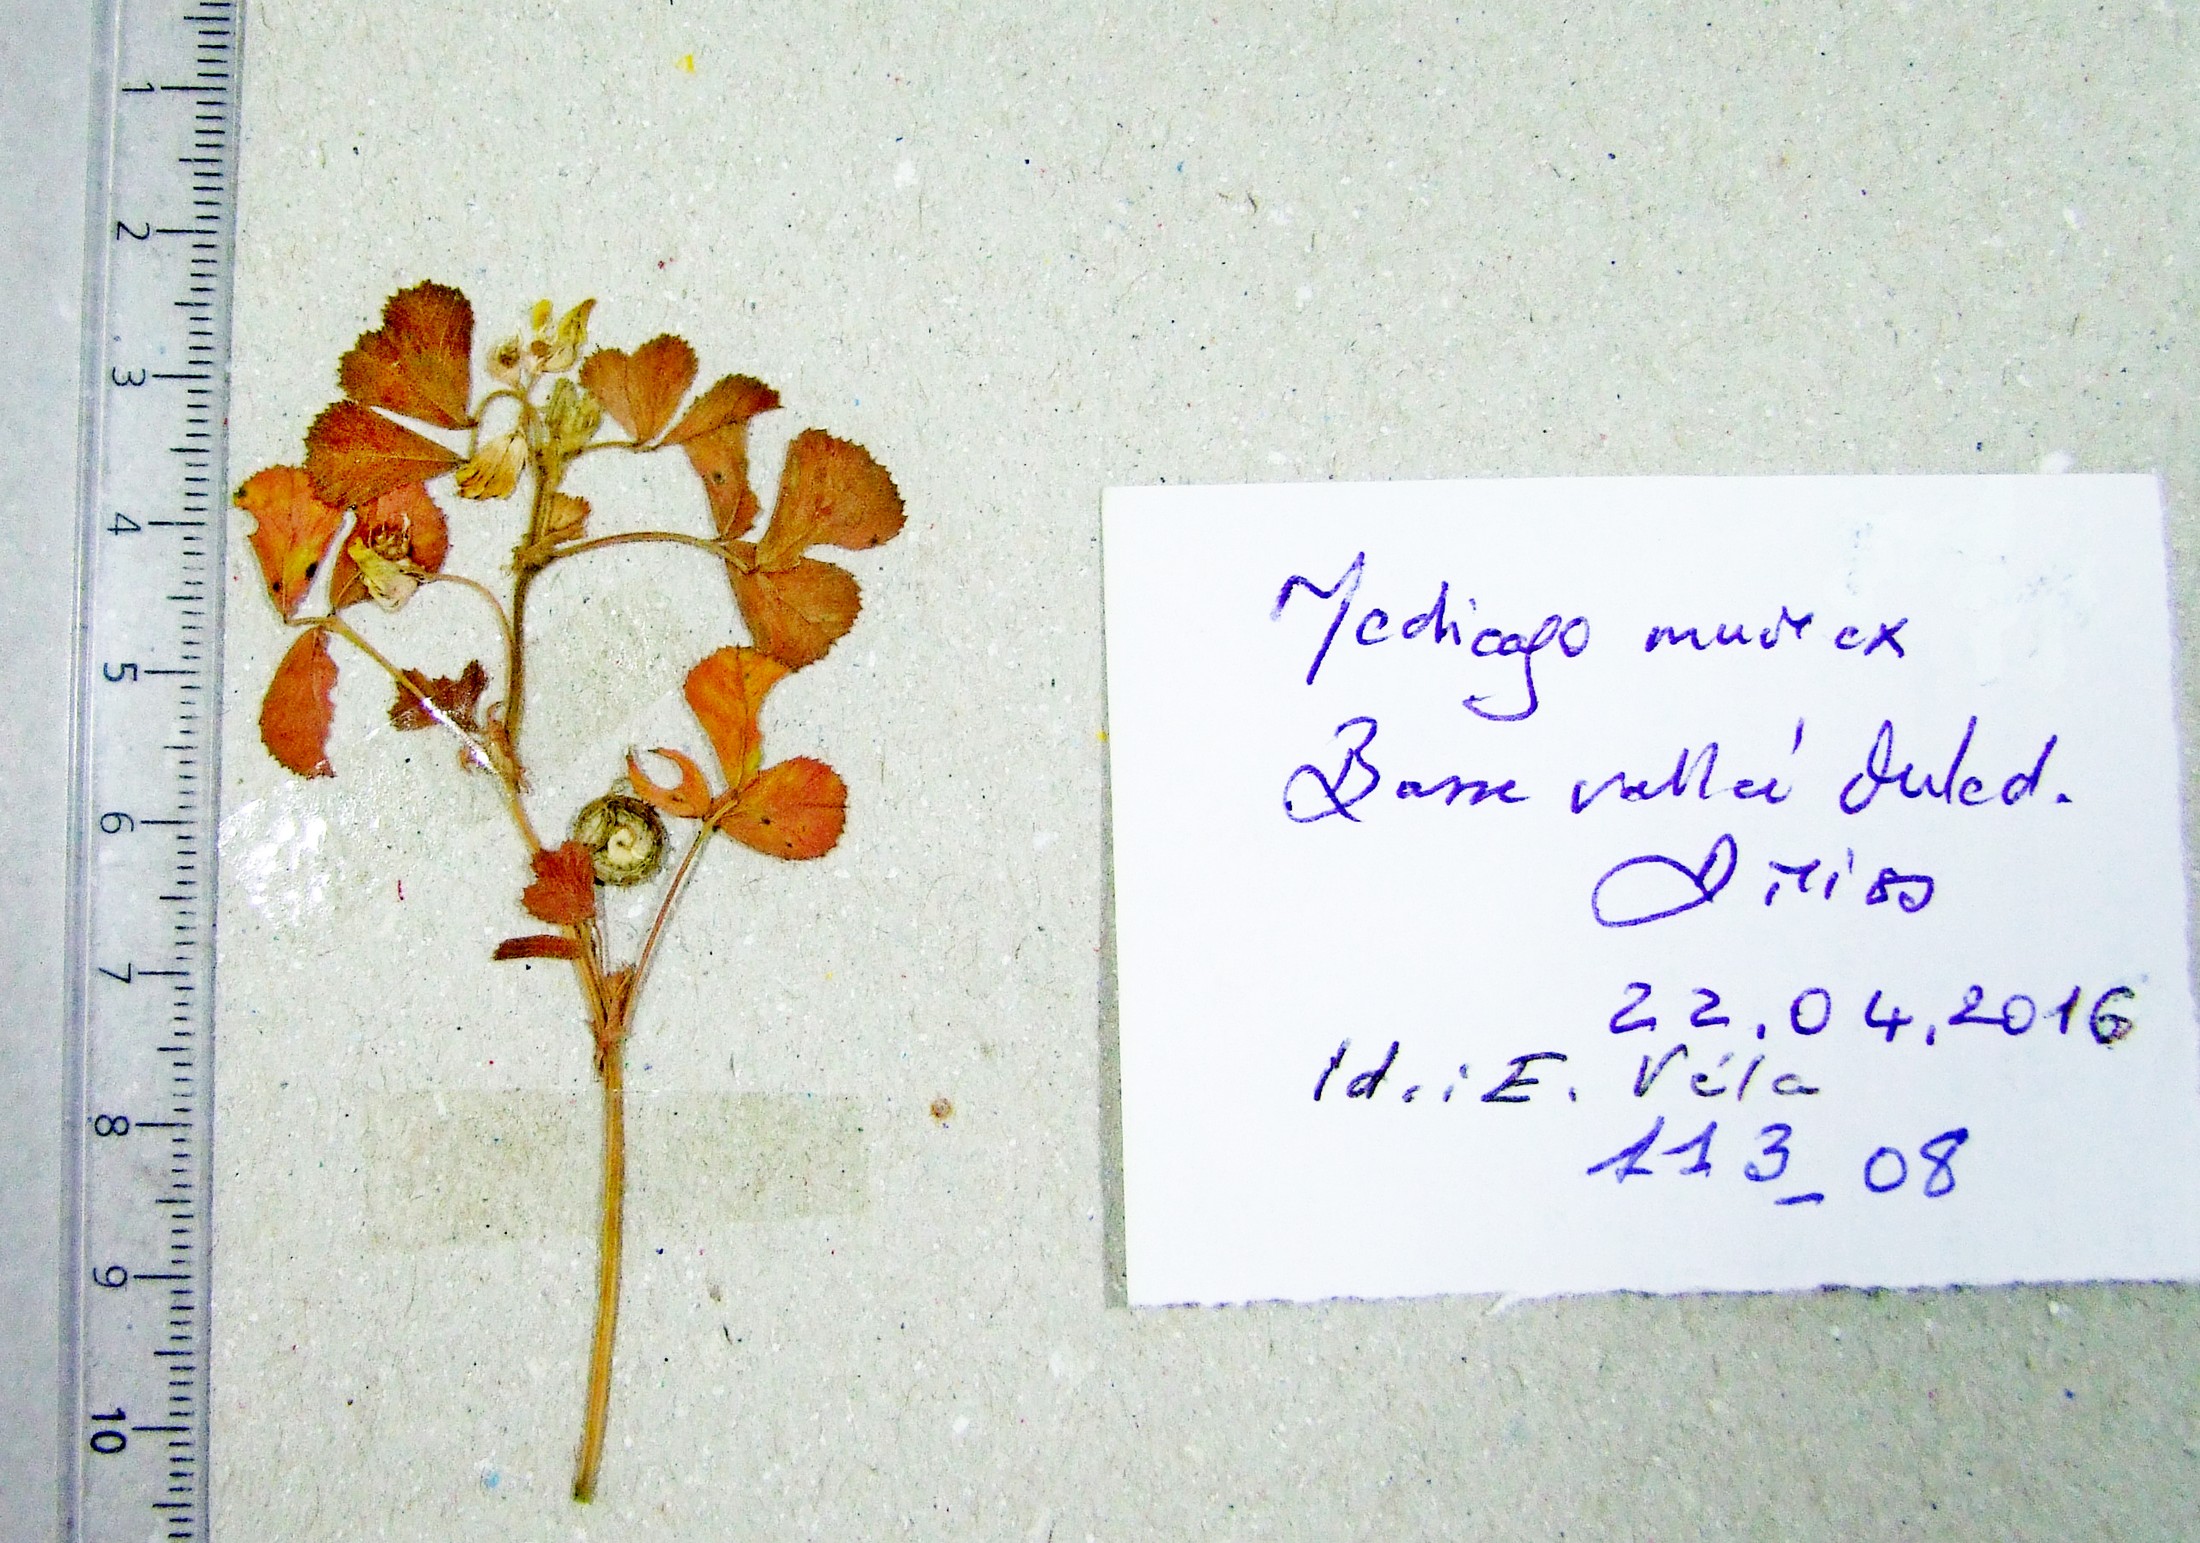 1
2
3
4
5
6
7
8
9
10
Medicago murex
Basse vallée Oued.
22.04.2016
Id.: E. Véla
113_08